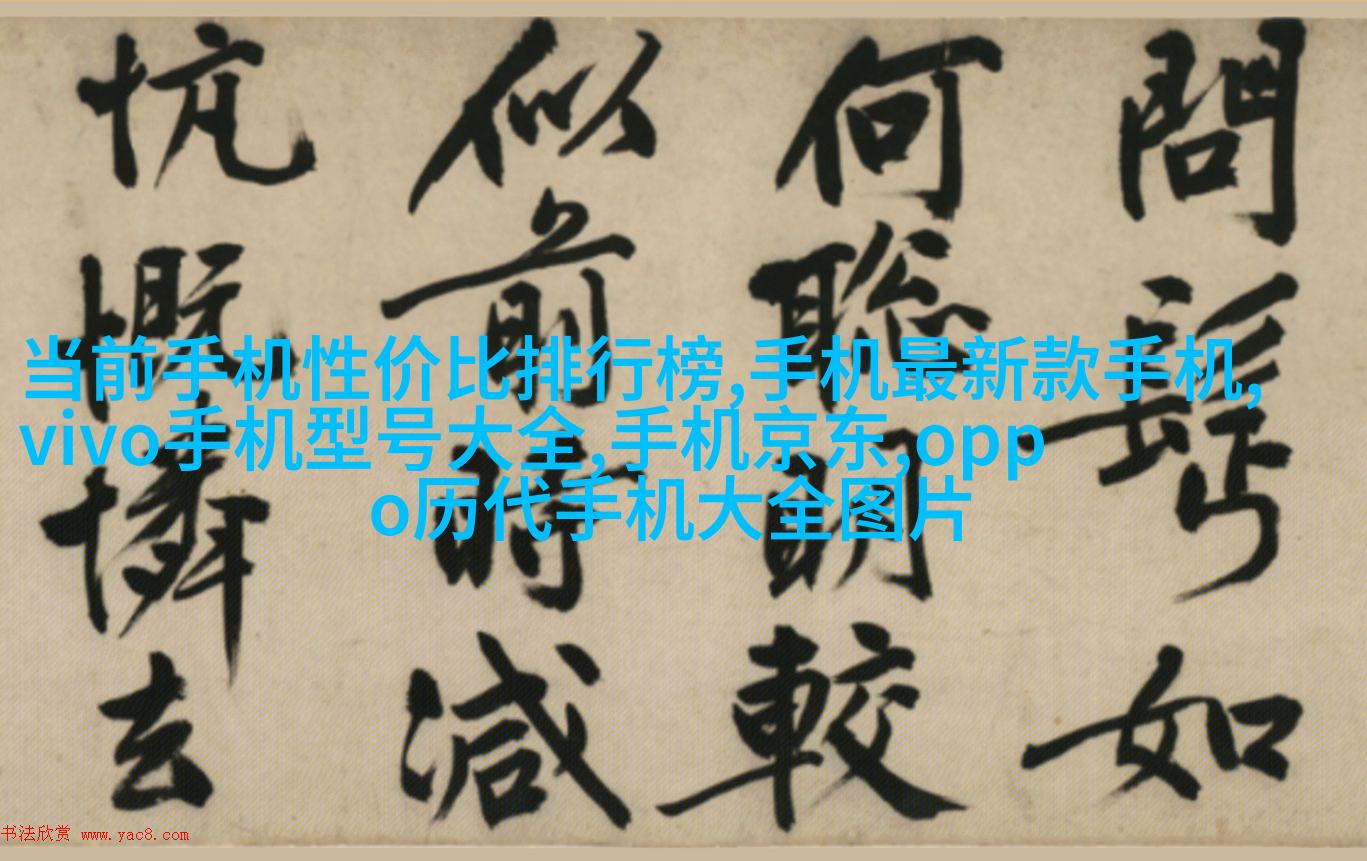 問 如
何聰明較
似前時減
忼慨憐去
当前手机性价比排行榜,手机最新款手机,
vivo手机型号大全,手机京东,opp
o历代手机大全图片
书法欣赏 www.yac8.com